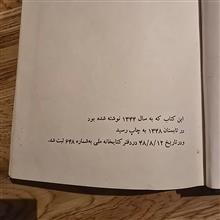 این کتاب که به سال ۱۳۴۴ نوشته شده بود
در تابستان ۱۳۴۸ به چاپ رسید
و در تاریخ ۴۸/۸/۱۲ در دفتر کتابخانه ملی به‌شماره ۶۴۸ ثبت شد.